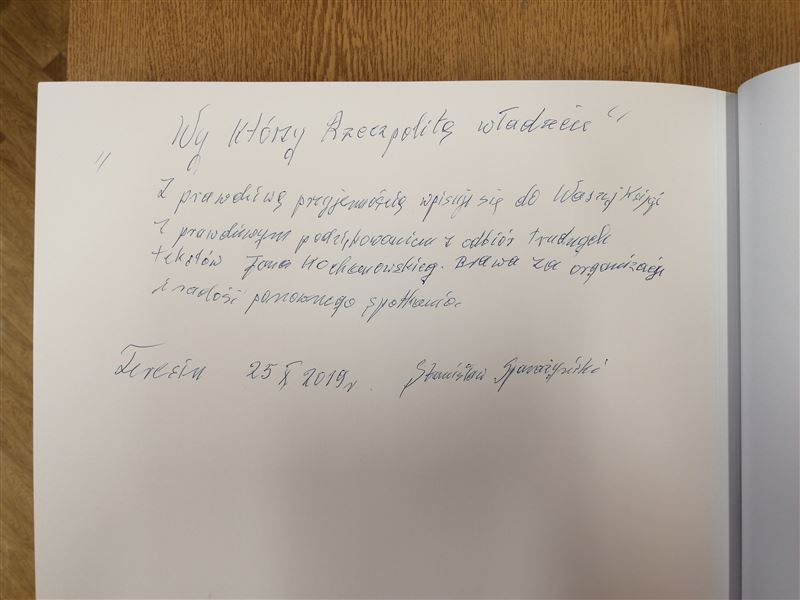 „Wy którzy Rzecząpolitą władacie"
Z prawdziwą przyjemnością wpisuję się do Waszej Księgi
z prawdziwym podziękowaniem z odbiór trudnych
tekstów Jana Kochanowskiego. Brawa za organizację
i radość ponownego spotkania.
Teresin 25 X 2019 r. Stanisław